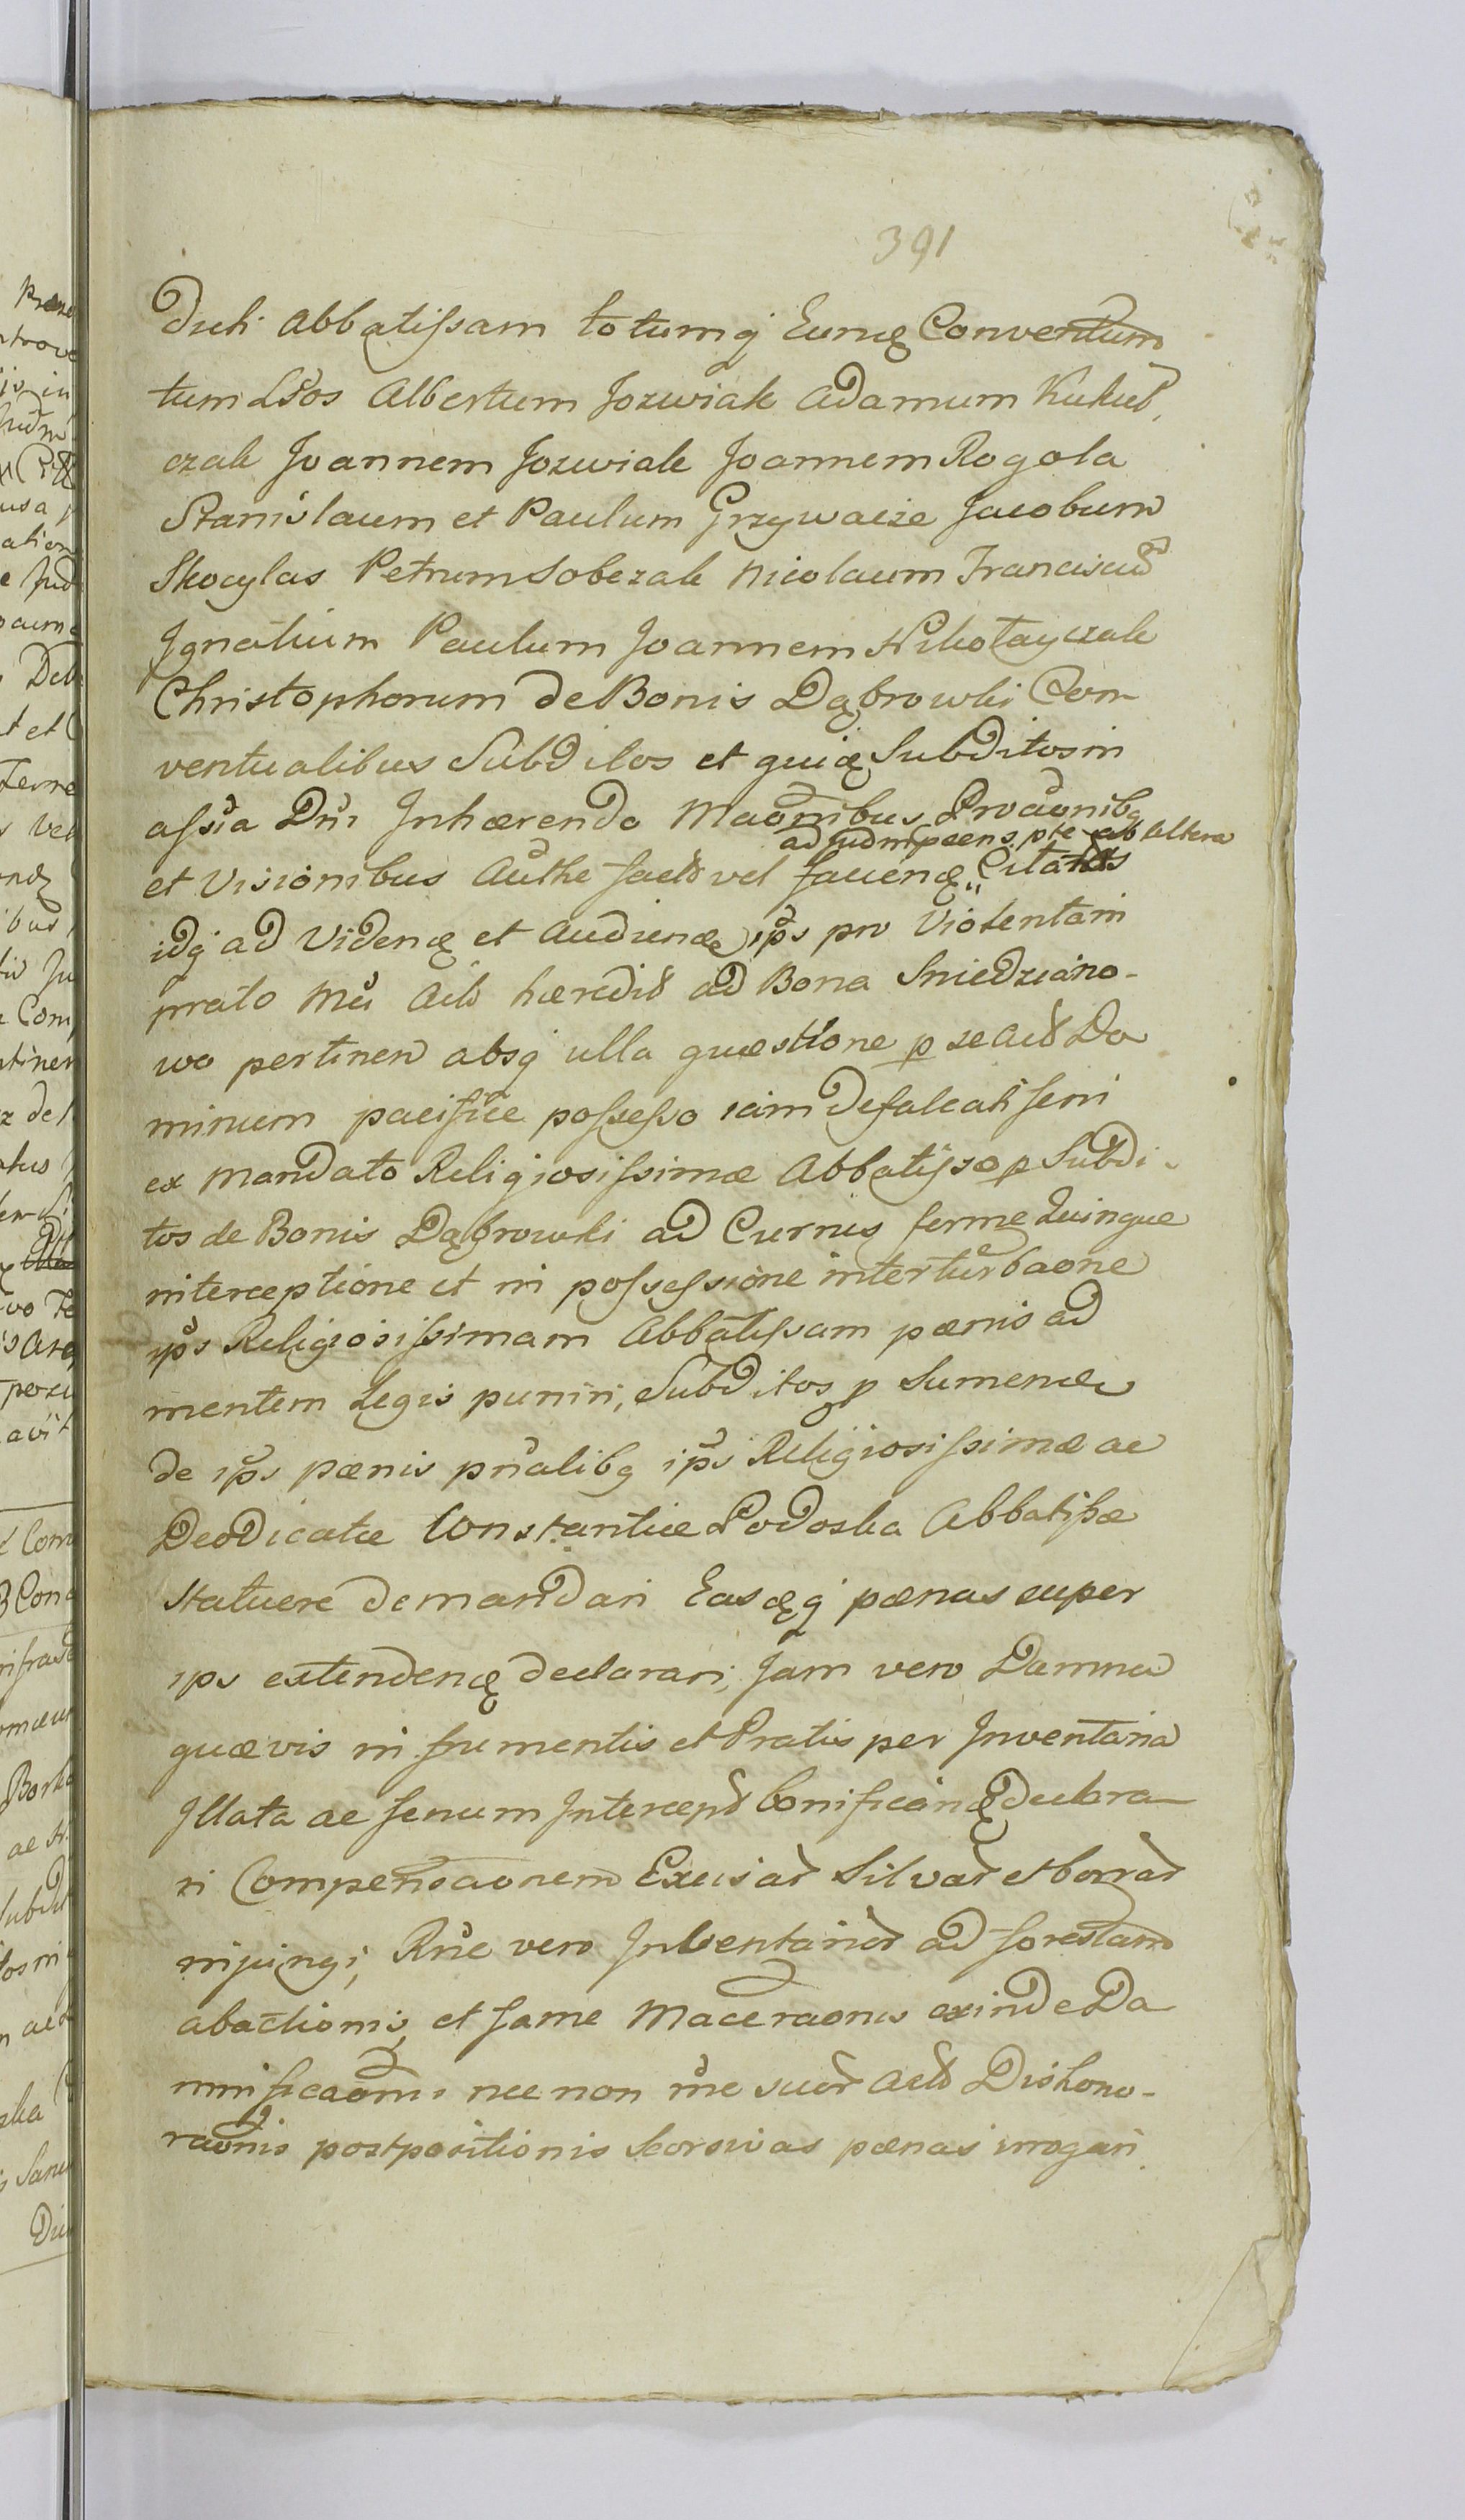 391
Duti Abbatissam totumq Eumq Conventum
tum Lb̃os Albertum Jozwiak Adamum Kukuł,
czak Joannem Jozwiak Joannem Rogola
Stanislaum et Paulum Grzywacze Jacobum
Skocylas Petrum Sobczak Nicolaum Franciscũ
Ignatium Paulum Joannem Nikołayczak
Christophorum de Bonis Dąbrowki Con
ventualibus Subditos et quiq Subditos in
assia Dni Inhærendo Maõnibus Proaõnibq
ad Judm præens pte ab altera
et Visionibus Authe factt vel faciend Citatos
idq ad Videnq et Audienq ips pro Violentam
prato Mci Actt hæredit ad Bona Sniedziano-
wo pertinen absq ulla quæstione p se Actt Do
minum pacifice possesso iam defalcati feni
ex mandato Religiosissimæ Abbatissæ p Subdi-
tos de Bonis Dąbrowki ad Currus ferme Quinque
interceptione et in possessione interturbaone
ips Religiosissimam Abbatissam pænis ad
mentem Legis puniri, Subditos p Sumenda
de ips pænis pnalibq ips Religiosissimæ ac
Deodicatæ Constantiæ Podoska Abbatissæ
statuere demandari Easqq pænas super
ips extendenq declarari, Jam vero Damna
quævis in frumentis et Pratis per Inventaria
Illata ac fenum Intercept bonificanq declara
ri Compensaonem Excisar Silvar et borrar
injungi, Rne vero Inventarior ad forestam
abactionis, et fame Maceraonis exinde Da
mnificaomi nec non me suor Actt Dishono-
raonis postpositionis seorsivas pænas irrogari